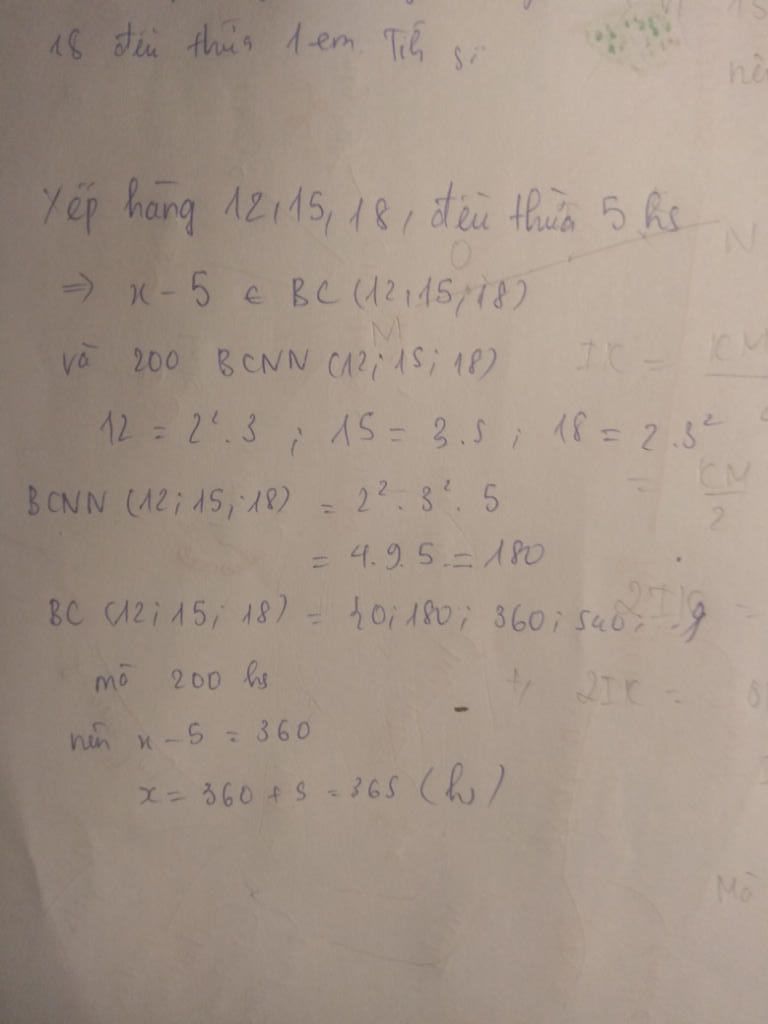 18 đều thừa 1 em. Tíh số
Xếp hàng 12, 15, 18, đều thừa 5 hs
⇒ x - 5 ∈ BC (12; 15; 18)
và 200 BCNN (12; 15; 18)
12 = 2². 3 ; 15 = 3.5 ; 18 = 2.3²
BCNN (12; 15; 18) = 2². 3². 5
= 4.9.5 = 180
BC (12; 15; 18) = {0; 180; 360; 540; ...}
mà 200 hs
nên x - 5 = 360
x = 360 + 5 = 365 (hs)
N
O
M
IK = CM
= CN/2
2IK =
2IK =
Mà
nê